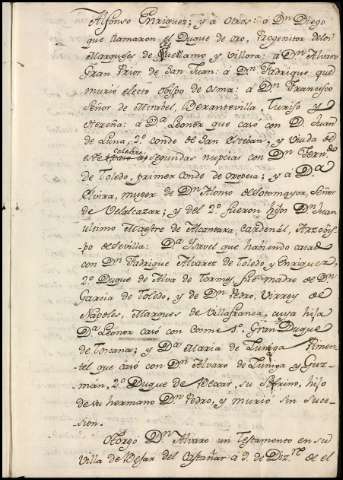 Alfonso Enriquez; y a otros: a Dn. Diego
que llamaron el Duque de oro, Progenitor de los
Marqueses de Fuellamo y Villora: a Dn. Alvaro
Gran Prior de San Juan: a Dn. Fadrique, que
murió electo Obispo de Osma: a Dn. Francisco
Señor de Mirabel, Berantevilla, Turiso, y
Hereña: a Da. Leonor que casó con D. Juan
de Luna, 2o. conde de San Estevan, y viuda de
celebró segundas nupcias con Dn. Ferndo.
de Toledo, primer Conde de Oropesa; y a Da.
Elvira, muger de Dn. Alonso de Sotomayor, Señor
de Velalcazar; y del 2o. fueron hijos Dn. Juan
ultimo Maestre de Alcantara, Cardenal, Arzobis-
po de Sevilla: Da. Isavel que haviendo casado
con Dn. Fadrique Alvarez de Toledo y Enriquez,
2o. Duque de Alva de Tormes, fue madre de Dn.
Garcia de Toledo, y de Dn. Pedro, Virrey de
Napoles, Marques de Villafranca, cuya hija
Da. Leonor casó con Cosme 1o. Gran Duque
de Toscana; y Da. Maria de Zuñiga Pimen-
tel que casó con Dn. Alvaro de Zuñiga y Guz-
man, 2o. Duque de Bexar, su sobrino, hijo
de su hermano Dn. Pedro, y murió sin suce-
sion.
Otorgó Dn. Alvaro un Testamento en su
Villa de Bejar del Castañar a 9. de Dizre. de el